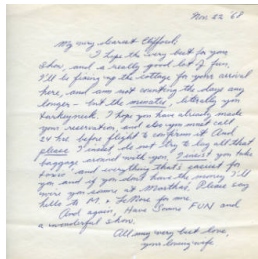 Nov. 22 '68
My very dearest Clifford,
I hope the very best for your
show, and is really good lot of fun,
I'll be fixing up the cottage for your arrival
here, and am not counting the days any
longer - but the minutes, literally you
turkeyneck. I hope you have already made
your reservation, and also you must call
24 hrs. before flight to confirm it. And
please I insist do not try to lug all that
baggage around with you, I insist you take
taxis and everything that's easiest for
you and if you don't have the money I'll
you some at Martha's. Please say
hello to M. + for me.
And again, Have Some FUN and
a wonderful show.
All my very best love,
your loving wife